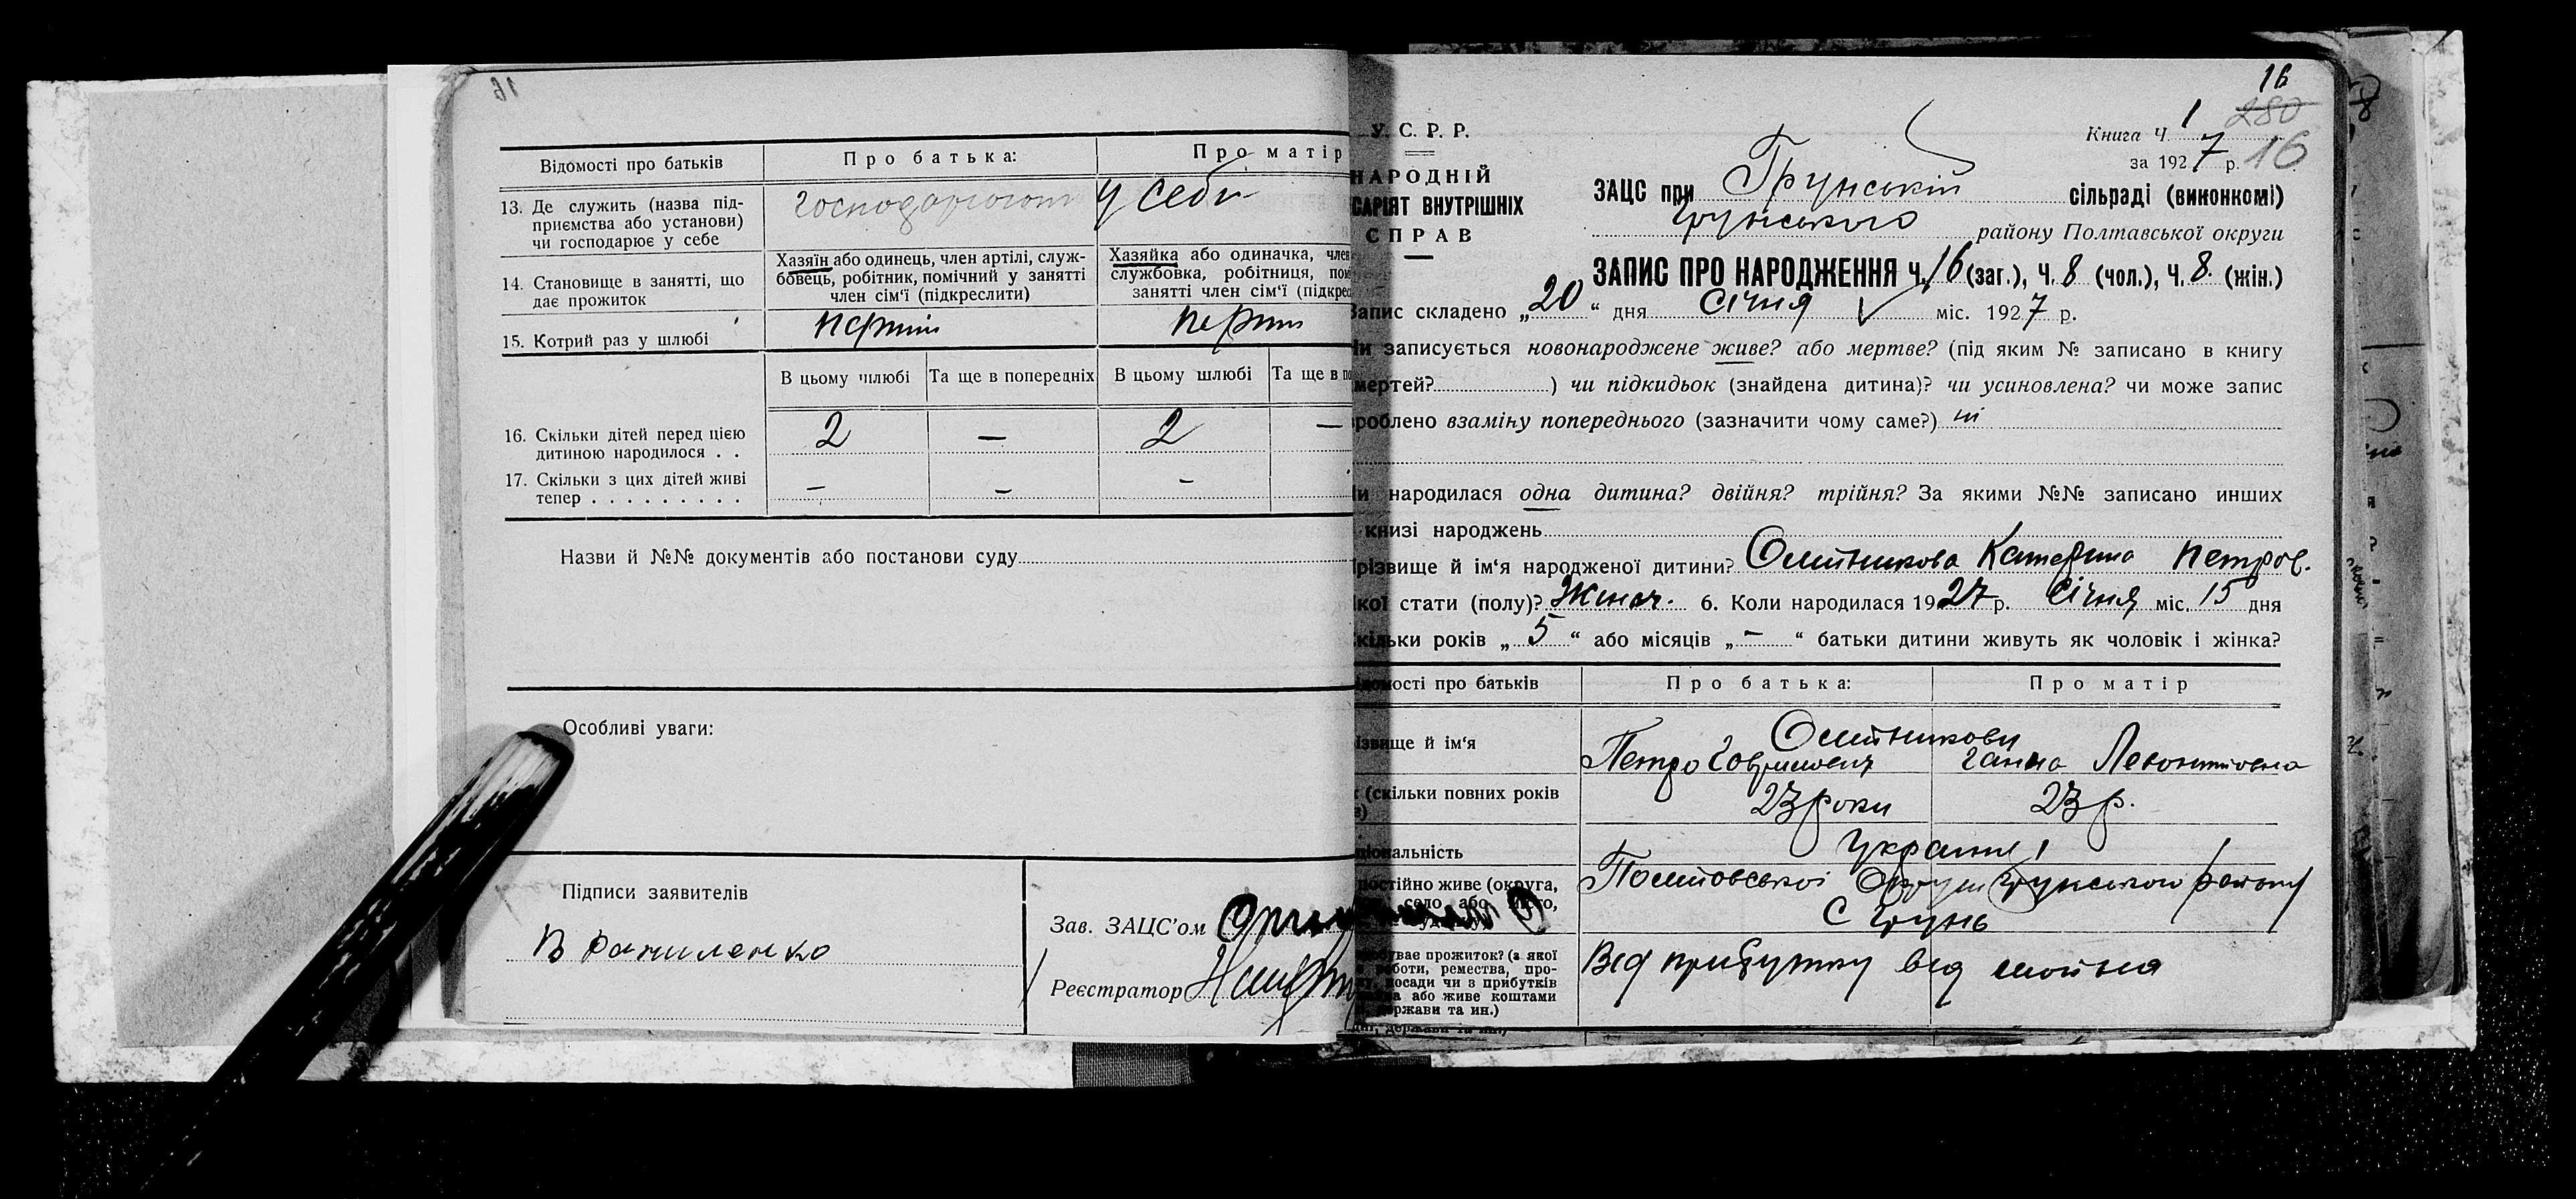 16
Відомості про батьків
Про батька:
Про матір
13. Де служить (назва під-
приємства або установи)
чи господарює у себе
господарюют у себе
14. Становище в занятті, що
дає прожиток
Хазяїн або одинець, член артілі, служ-
бовець, робітник, помічний у занятті
член сім'ї (підкреслити)
Хазяйка або одиначка, член
службовка, робітниця, пом
занятті член сім'ї (підкре
15. Котрий раз у шлюбі
перший
перший
В цьому шлюбі
Та ще в попередніх
В цьому шлюбі
Та ще в по
16. Скільки дітей перед цією
дитиною народилося . .
2 — 2 —
17. Скільки з цих дітей живі
тепер . . . . . . . . .
— — —
Назви й №№ документів або постанови суду
Особливі уваги:
Підписи заявителів
В Даниленко
Зав. ЗАЦС'ом
Реєстратор
16
280
У. С. Р. Р.
Книга Ч. 1
за 1927 р. 16
НАРОДНІЙ
САРІЯТ ВНУТРІШНІХ
СПРАВ
ЗАЦС при Грунській сільраді (виконкомі)
Грунського району Полтавської округи
ЗАПИС ПРО НАРОДЖЕННЯ Ч. 16 (заг.), Ч. 8 (чол.), Ч. 8. (жін.)
Запис складено „20“ дня січня міс. 1927 р.
Чи записується новонароджене живе? або мертве? (під яким № записано в книгу
мертей?) чи підкидьок (знайдена дитина)? чи усиновлена? чи може запис
роблено взаміну попереднього (зазначити чому саме?) ні
Чи народилася одна дитина? двійня? трійня? За якими №№ записано инших
книзі народжень
різвище й ім'я народженої дитини? Олійникова Катерина Петров.
кої стати (полу)? Жіноч. 6. Коли народилася 1927 р. Січня міс. 15 дня
кільки років „5“ або місяців „—“ батьки дитини живуть як чоловік і жінка?
домості про батьків
Про батька:
Про матір
ізвище й ім'я
Олійникови
Петро Гаврилович
Ганна Левонтіовна
(скільки повних років
23 роки
23 р.
ціональність
Україні
постійно живе (округа,
село або місто,
Полтовської Округи Грунського району
С Грунь
буває прожиток? (з якої
роботи, ремества, про-
посади чи з прибутків
або живе коштами
держави та ин.)
Від прибутку від